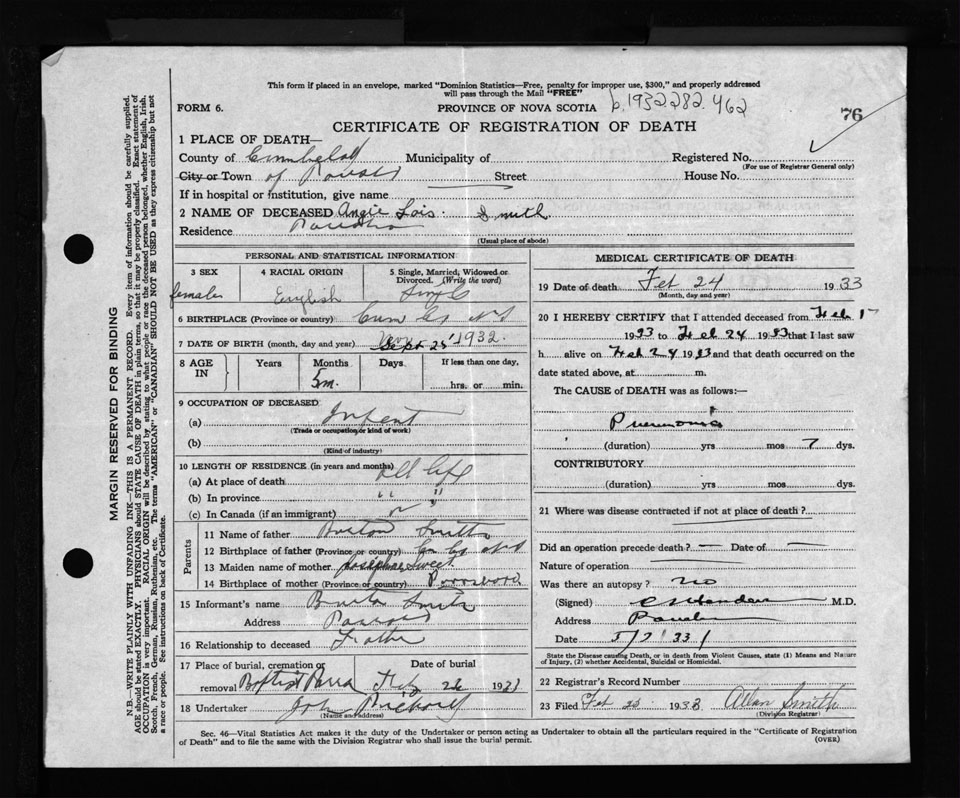 This form if placed in an envelope, marked "Dominion Statistics—Free, penalty for improper use, $300," and properly addressed
will pass through the Mail "FREE"
FORM 6. PROVINCE OF NOVA SCOTIA b.1932 282.462 76
CERTIFICATE OF REGISTRATION OF DEATH
1 PLACE OF DEATH—
County of Municipality of Registered No.
(For use of Registrar General only)
City or Town of Street House No.
If in hospital or institution, give name
2 NAME OF DECEASED Angie Lois Smith
Residence
(Usual place of abode)
PERSONAL AND STATISTICAL INFORMATION
3 SEX 4 RACIAL ORIGIN 5 Single, Married, Widowed or
Divorced. (Write the word)
female English Single
6 BIRTHPLACE (Province or country) Cum Co N S
7 DATE OF BIRTH (month, day and year) Sept 25 1932.
8 AGE IN Years Months Days If less than one day,
5 m. hrs. or min.
9 OCCUPATION OF DECEASED
(a) Infent
(Trade or occupation or kind of work)
(b)
(Kind of industry)
10 LENGTH OF RESIDENCE (in years and months)
(a) At place of death all life
(b) In province " "
(c) In Canada (if an immigrant)
Parents
11 Name of father Burton Smith
12 Birthplace of father (Province or country) Cm Co N S
13 Maiden name of mother Josephine Sweet
14 Birthplace of mother (Province or country)
15 Informant's name Smith
Address
16 Relationship to deceased Father
17 Place of burial, cremation or Date of burial
removal Baptist Feb 26 1933
18 Undertaker John
(Name and address)
MEDICAL CERTIFICATE OF DEATH
19 Date of death Feb 24 1933
(Month, day and year)
20 I HEREBY CERTIFY that I attended deceased from Feb 17
1933 to Feb 24 1933 that I last saw
h alive on Feb 24 1933 and that death occurred on the
date stated above, at m.
The CAUSE of DEATH was as follows:—
Pneumonia
(duration) yrs mos 7 dys.
CONTRIBUTORY
(duration) yrs mos dys.
21 Where was disease contracted if not at place of death?
Did an operation precede death? — Date of —
Nature of operation
Was there an autopsy? no
(Signed) M.D.
Address
Date
State the Disease causing Death, or in death from Violent Causes, state (1) Means and Nature
of Injury, (2) whether Accidental, Suicidal or Homicidal.
22 Registrar's Record Number
23 Filed Feb 1933 Allan Smith
(Division Registrar)
Sec. 46—Vital Statistics Act makes it the duty of the Undertaker or person acting as Undertaker to obtain all the particulars required in the "Certificate of Registration
of Death" and to file the same with the Division Registrar who shall issue the burial permit. (OVER)
MARGIN RESERVED FOR BINDING
N.B.—WRITE PLAINLY WITH UNFADING INK—THIS IS A PERMANENT RECORD. Every item of information should be carefully supplied.
AGE should be stated EXACTLY. PHYSICIANS should STATE CAUSE OF DEATH in plain terms, so that it may be properly classified. Exact statement of
OCCUPATION is very important. RACIAL ORIGIN will be described by stating to what people or race the deceased person belonged, whether English, Irish,
Scotch, French, German, Russian, Ruthenian, etc. The terms "AMERICAN" or "CANADIAN" SHOULD NOT BE USED as they express citizenship but not
a race or people. See instructions on back of Certificate.